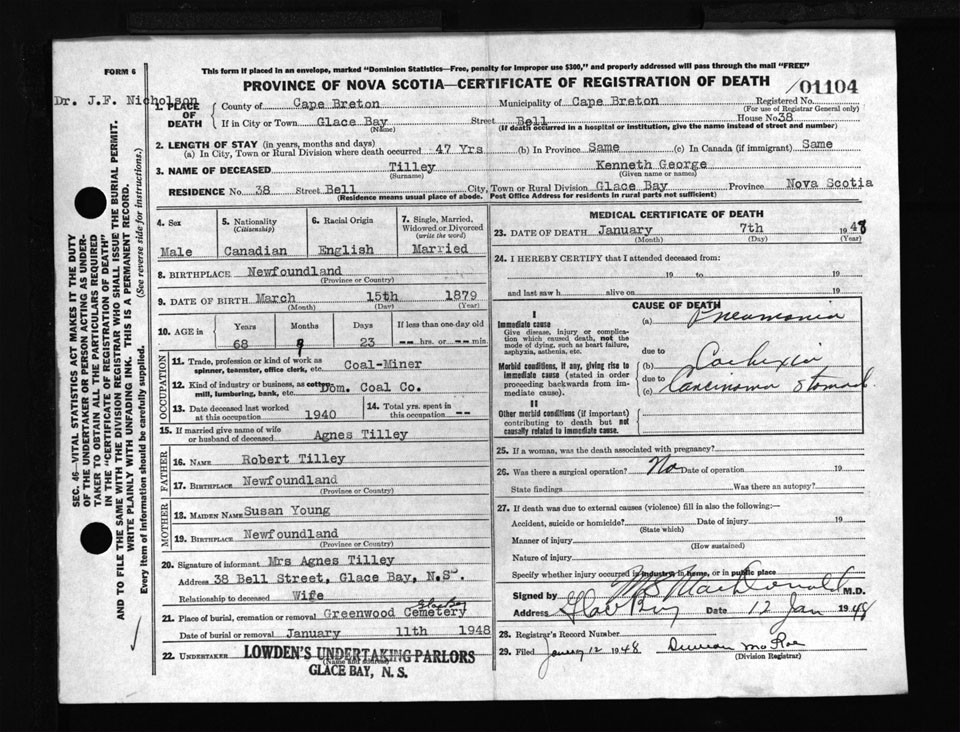 FORM 6
This form if placed in an envelope, marked "Dominion Statistics—Free, penalty for improper use $300," and properly addressed will pass through the mail "FREE"
PROVINCE OF NOVA SCOTIA—CERTIFICATE OF REGISTRATION OF DEATH
01104
Dr. J.F. Nicholson
1. PLACE OF DEATH
County of Cape Breton Municipality of Cape Breton Registered No.
(For use of Registrar General only)
If in City or Town Glace Bay Street Bell House No. 38
(Name) (If death occurred in a hospital or institution, give the name instead of street and number)
2. LENGTH OF STAY (in years, months and days)
(a) In City, Town or Rural Division where death occurred 47 Yrs (b) In Province Same (c) In Canada (if immigrant) Same
3. NAME OF DECEASED Tilley Kenneth George
(Surname) (Given name or names)
RESIDENCE No. 38 Street Bell City, Town or Rural Division Glace Bay Province Nova Scotia
(Residence means usual place of abode. Post Office Address for residents in rural parts not sufficient)
4. Sex
Male
5. Nationality
(Citizenship)
Canadian
6. Racial Origin
English
7. Single, Married, Widowed or Divorced
(write the word)
Married
8. BIRTHPLACE Newfoundland
(Province or Country)
9. DATE OF BIRTH March 15th 1879
(Month) (Day) (Year)
10. AGE in Years Months Days If less than one day old
68 9 23 -- hrs. or -- min.
OCCUPATION
11. Trade, profession or kind of work as spinner, teamster, office clerk, etc. Coal-Miner
12. Kind of industry or business, as cotton mill, lumbering, bank, etc. Dom. Coal Co.
13. Date deceased last worked at this occupation 1940
14. Total yrs. spent in this occupation --
15. If married give name of wife or husband of deceased Agnes Tilley
FATHER
16. NAME Robert Tilley
17. BIRTHPLACE Newfoundland
(Province or Country)
MOTHER
18. MAIDEN NAME Susan Young
19. BIRTHPLACE Newfoundland
(Province or Country)
20. Signature of informant Mrs Agnes Tilley
Address 38 Bell Street, Glace Bay, N.S.
Relationship to deceased Wife
21. Place of burial, cremation or removal Greenwood Cemetery Glace Bay
Date of burial or removal January 11th 1948
22. UNDERTAKER LOWDEN'S UNDERTAKING PARLORS
(Name and address)
GLACE BAY, N. S.
MEDICAL CERTIFICATE OF DEATH
23. DATE OF DEATH January 7th 1948
(Month) (Day) (Year)
24. I HEREBY CERTIFY that I attended deceased from:
19 to 19
and last saw h alive on 19
CAUSE OF DEATH
I
Immediate cause
Give disease, injury or complication which caused death, not the mode of dying, such as heart failure, asphyxia, asthenia, etc.
(a) Pneumonia
due to
Morbid conditions, if any, giving rise to immediate cause (stated in order proceeding backwards from immediate cause).
(b) Cachexia
due to
(c) Carcinoma Stomach
II
Other morbid conditions (if important) contributing to death but not causally related to immediate cause.
25. If a woman, was the death associated with pregnancy?
26. Was there a surgical operation? No Date of operation 19
State findings Was there an autopsy?
27. If death was due to external causes (violence) fill in also the following:—
Accident, suicide or homicide? Date of injury 19
(State which)
Manner of injury
(How sustained)
Nature of injury
Specify whether injury occurred in industry, in home, or in public place
Signed by MacDonald M.D.
Address Glace Bay Date 12 Jan 1948
28. Registrar's Record Number
29. Filed January 12 1948 Duncan McRae
(Division Registrar)
SEC. 46—VITAL STATISTICS ACT MAKES IT THE DUTY
OF THE UNDERTAKER OR PERSON ACTING AS UNDER-
TAKER TO OBTAIN ALL THE PARTICULARS REQUIRED
IN THE "CERTIFICATE OF REGISTRATION OF DEATH"
AND TO FILE THE SAME WITH THE DIVISION REGISTRAR WHO SHALL ISSUE THE BURIAL PERMIT.
WRITE PLAINLY WITH UNFADING INK. THIS IS A PERMANENT RECORD.
Every item of information should be carefully supplied. (See reverse side for instructions.)